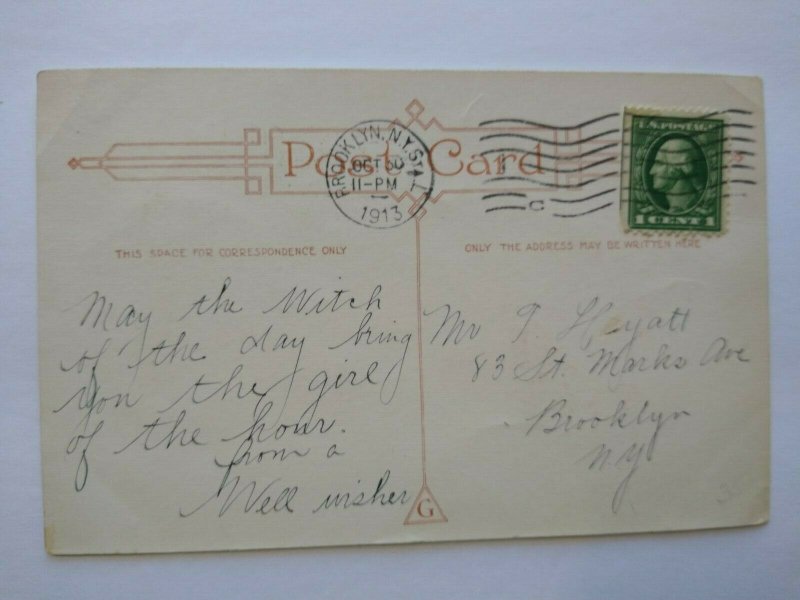 Post Card
BROOKLYN, N.Y. STA. L
OCT 30
11-PM
1913
C
U.S. POSTAGE
1 CENT 1
THIS SPACE FOR CORRESPONDENCE ONLY
ONLY THE ADDRESS MAY BE WRITTEN HERE
May the Witch
of the day bring
you the girl
of the hour.
from a
Well wisher
Mr T. Hyatt
83 St. Marks Ave
Brooklyn
NY
G